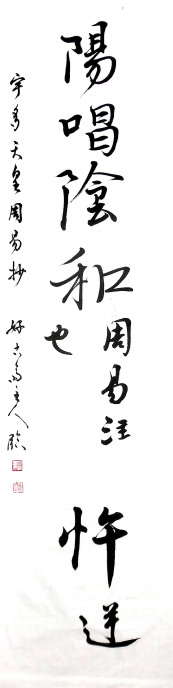 陽唱陰和
也
周易注
忤逆
宇多天皇周易抄 好古齋主人臨